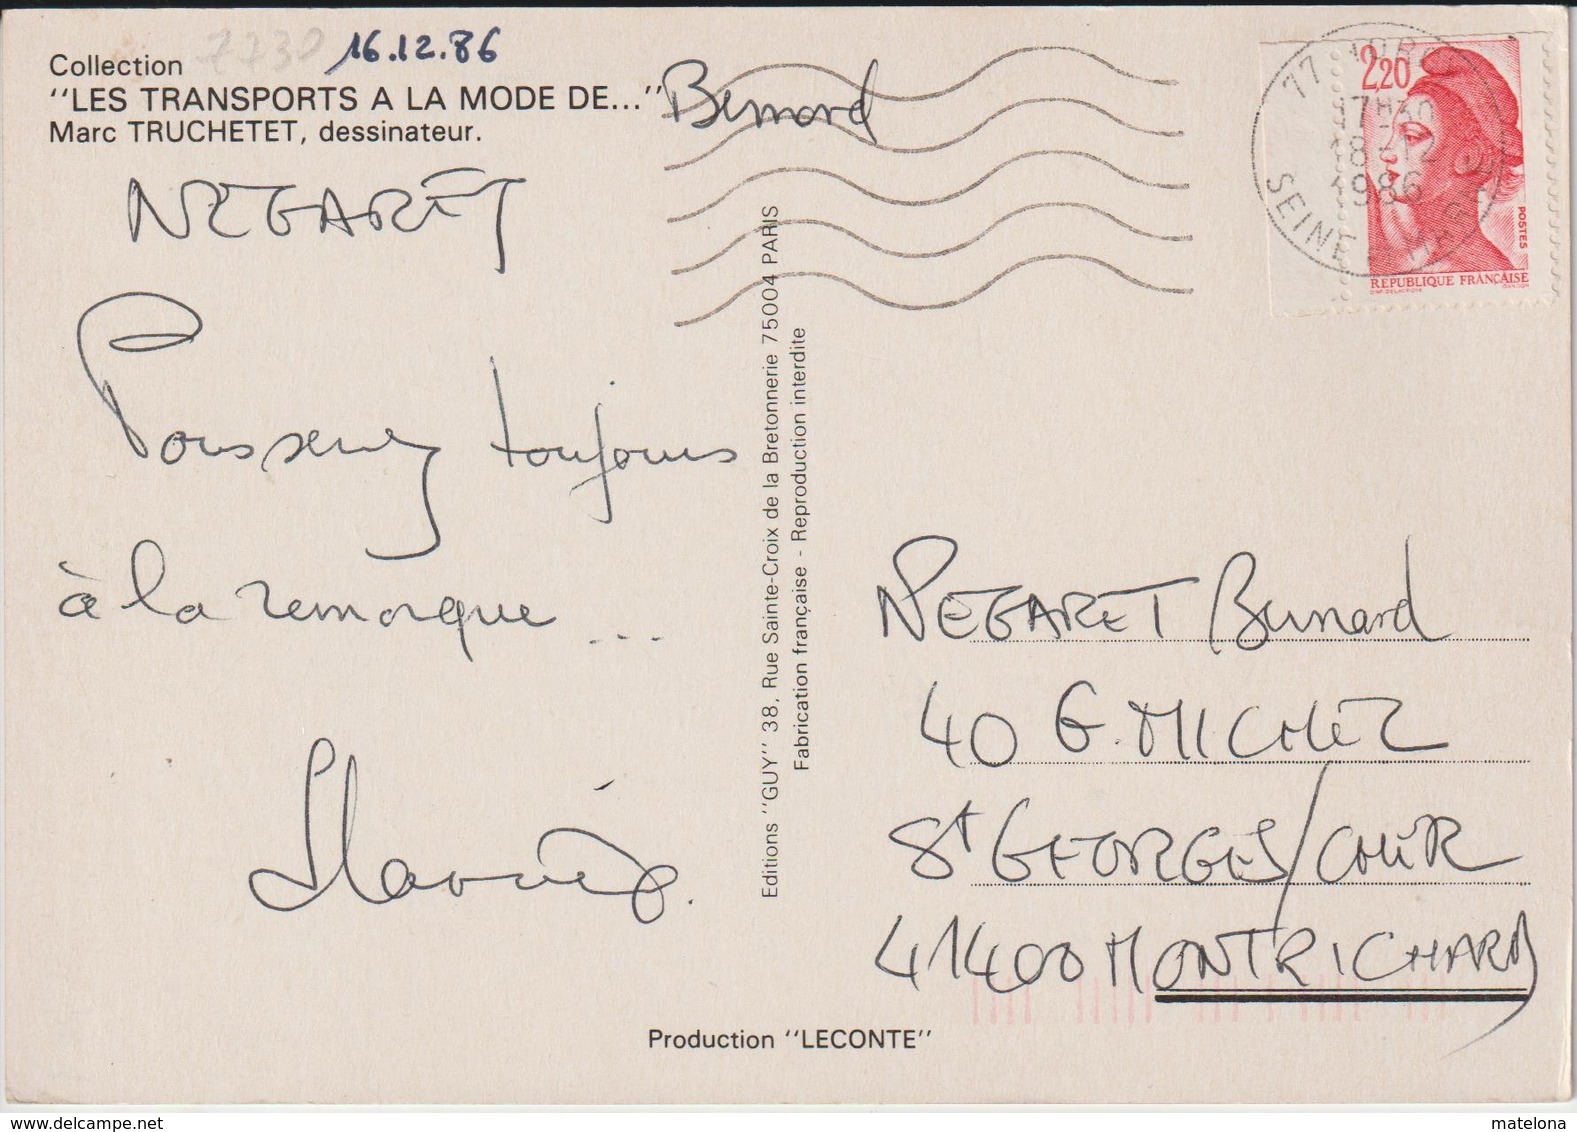 7730 16.12.86
Collection
"LES TRANSPORTS A LA MODE DE..." Bernard
Marc TRUCHETET, dessinateur.
NEGARET
Poussez toujours
à la remorque ...
Editions "GUY" 38, Rue Sainte-Croix de la Bretonnerie 75004 PARIS
Fabrication française - Reproduction interdite
17H30
18-12
1986
SEINE
2,20
POSTES
REPUBLIQUE FRANÇAISE
NEGARET Bernard
40 G. MICHEL
St GEORGES/CHER
41400 MONTRICHARD
Production "LECONTE"
matelona